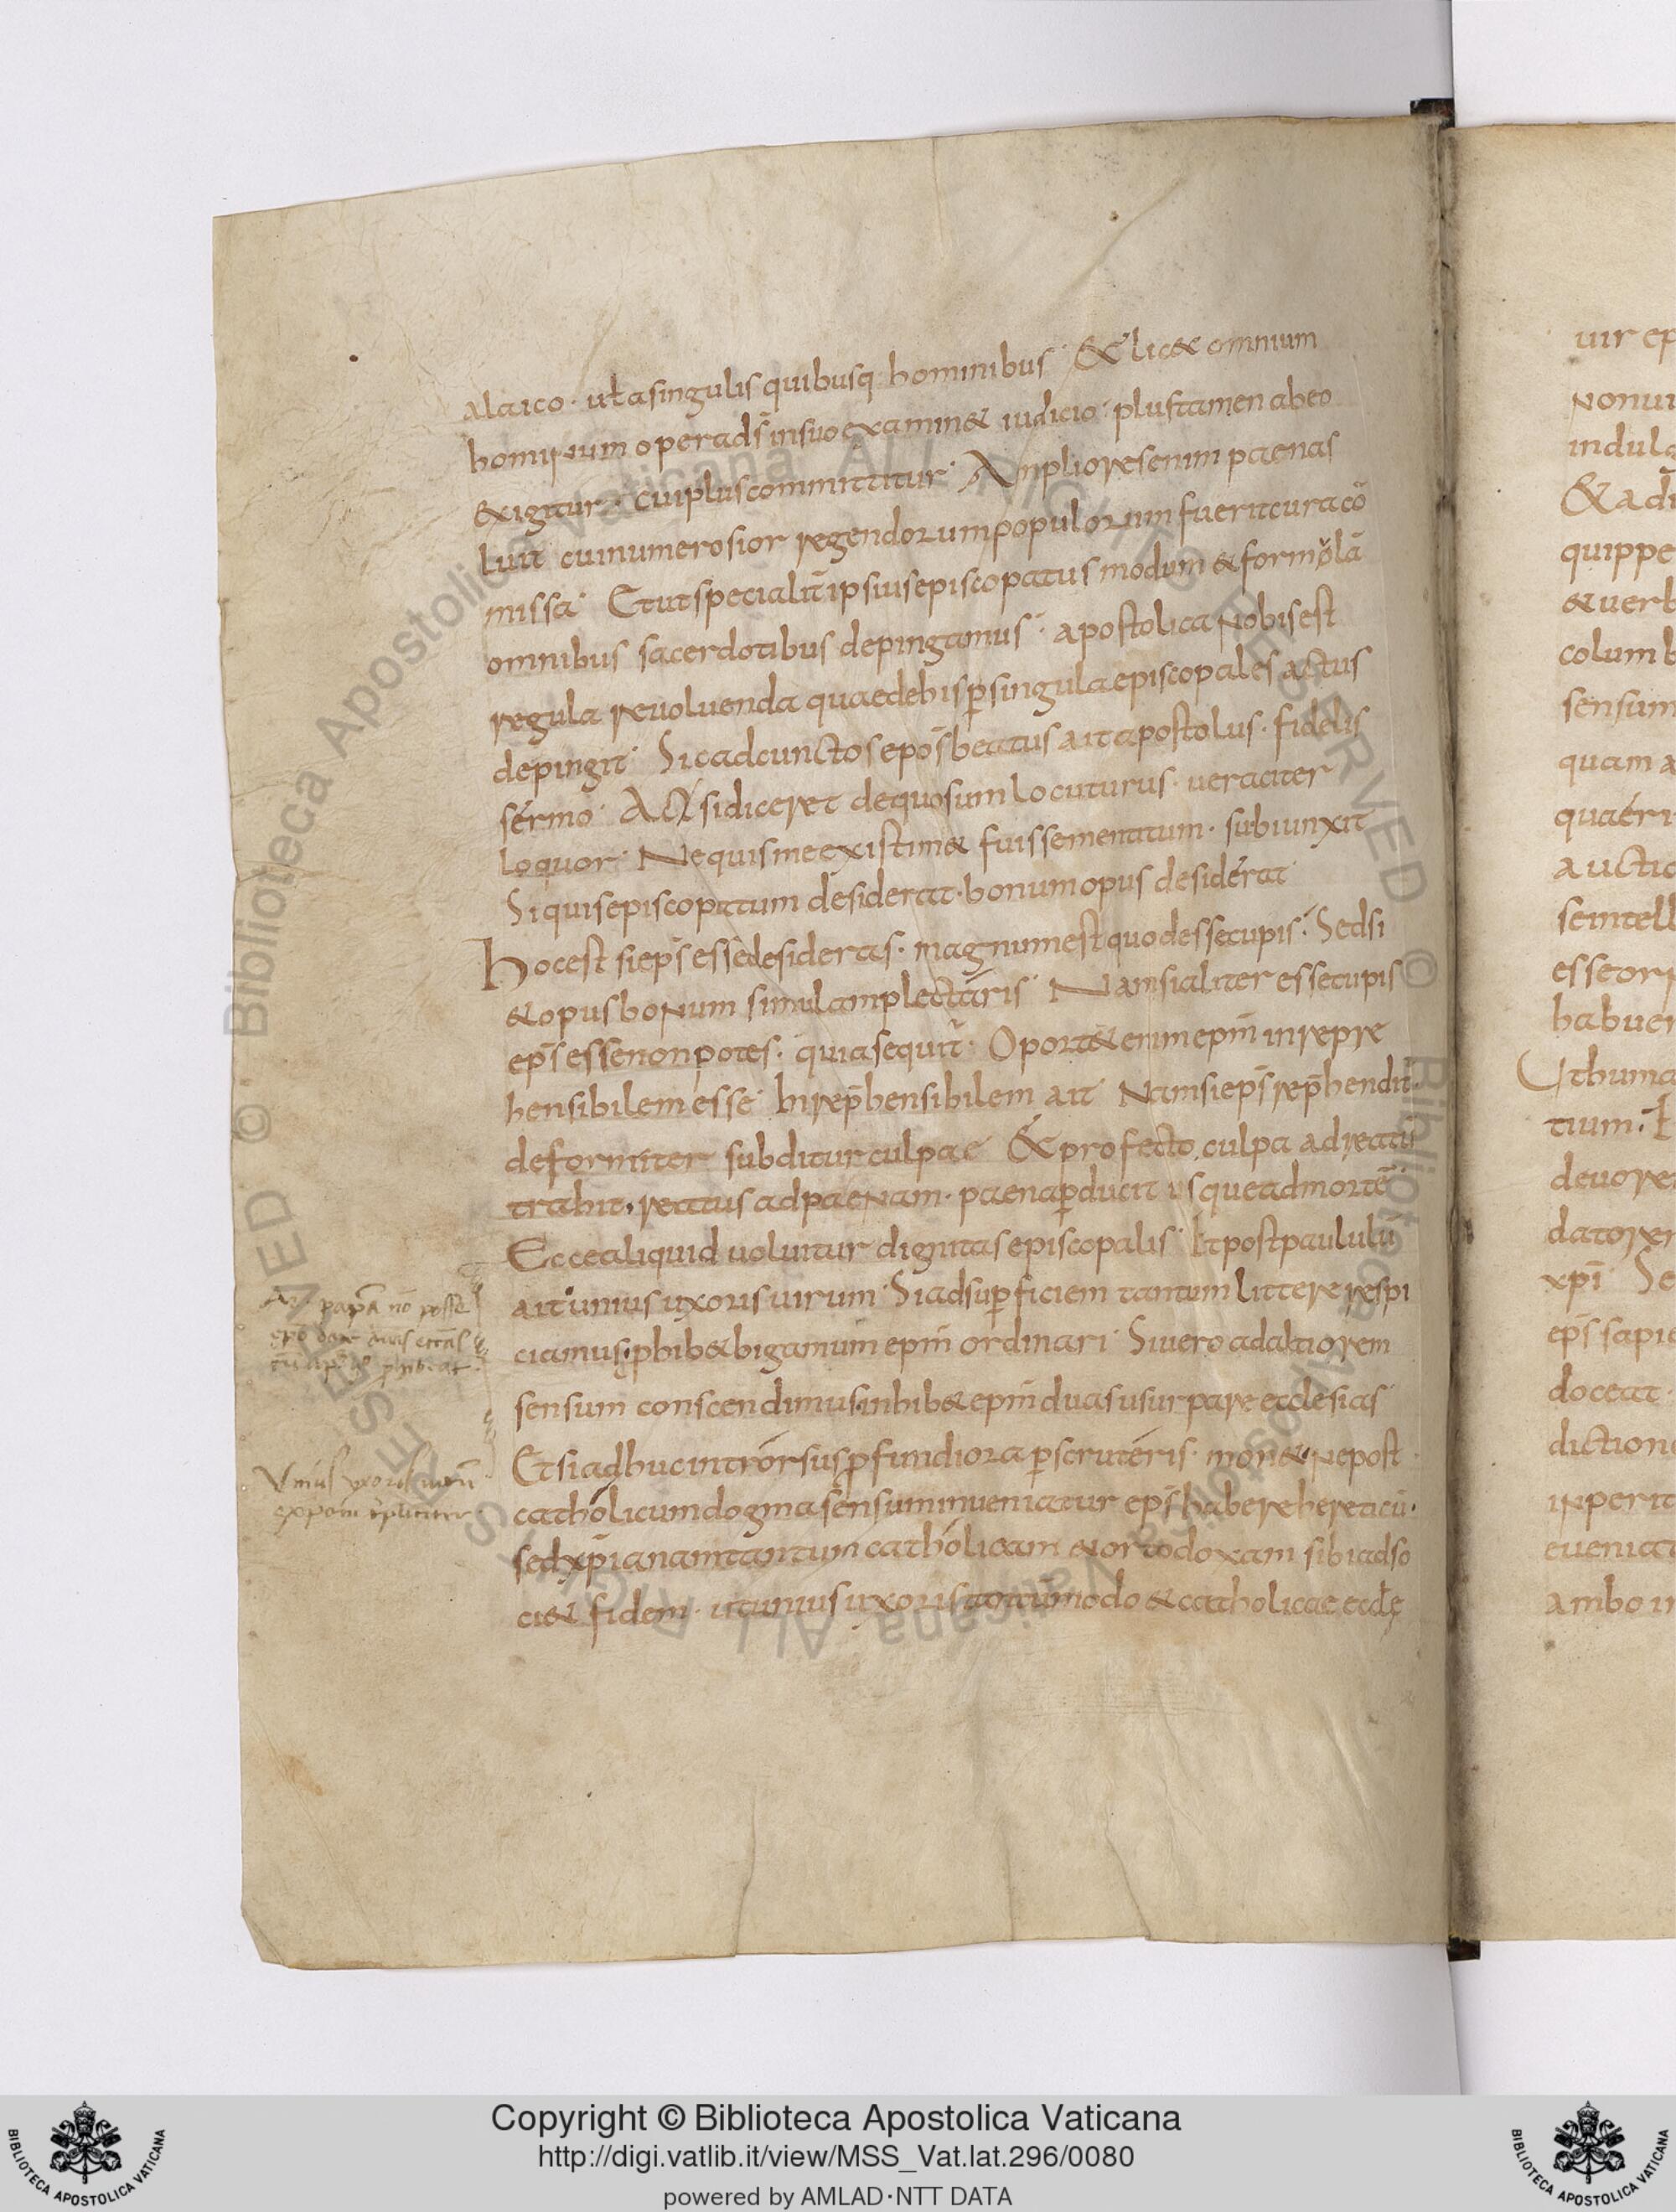 alaico · ut̄ a singulis quibusq· hominibus · & lic& omnium
hominum opera d̄s in suo examin& iudicio · plus tamen ab eo
exigitur · cui plus committitur · Ampliores enim paenas
luit cui numerosior regendorum populorum fuerit cura cō
missa · Et ut specialit̄ ipsius episcopatus modum & formolā
omnibus sacerdotibus depingamus · apostolica nobis est
regula reuoluenda quae de his p̄ singula episcopales actus
depingit · Sic ad cunctos epōs beatus ait apostolus · fidelis
sermo · Ac si diceret de quo sum locuturus · ueraciter
loquor · Ne quis me existim& fuisse mentatum · subiunxit
Si quis episcopatum desiderat · bonum opus desiderat
Hoc est si ep̄s esse desideras · magnum est quod esse cupis · Sed si
& opus bonum simul amplectaris · Nam si aliter esse cupis
ep̄s esse non potes · quia sequit̄ · Oport& enim epm̄ inrepre
hensibilem esse · Inrep̄hensibilem ait · Nam si ep̄s rep̄hendit̄
deformiter subditur culpae · & profecto culpa ad reatū
trahit · reatus ad paenam · paena p̄ducit usque ad mortē ·
Ecce aliquid uoluitur dignitas episcopalis · Et post paululū
ait unius uxoris uirum · Si ad sup̄ficiem tantum littere respi
ciamus · phib& bigamum epm̄ ordinari · Si uero ad altiorem
sensum conscendimus · inhib& epm̄ duas usurpare ecclesias
Et si adhuc introrsus pfundiora p̄scruteris · mon& ne post
catholicum dogma sensum inueniatur ep̄s habere hereticū ·
sed xp̄ianam tantum catholicam & ortodoxam sibi adso
ci& fidem · ut unius uxoris tantūmodo & catholicae eccle
papā nō posse
Vnius uxoris uirū
uir ep
nonui
indula
& ad
quippe
& uerb
columb
sensum
quam a
quaeri
auctio
se intell
esse orn
habuer
Ut huma
tium · E
deuore
datorer
xpī Se
ep̄s sapie
doceat
diction
inperit
eueniat
ambo in
Copyright © Biblioteca Apostolica Vaticana
http://digi.vatlib.it/view/MSS_Vat.lat.296/0080
powered by AMLAD·NTT DATA
BIBLIOTECA APOSTOLICA VATICANA
BIBLIOTECA APOSTOLICA VATICANA